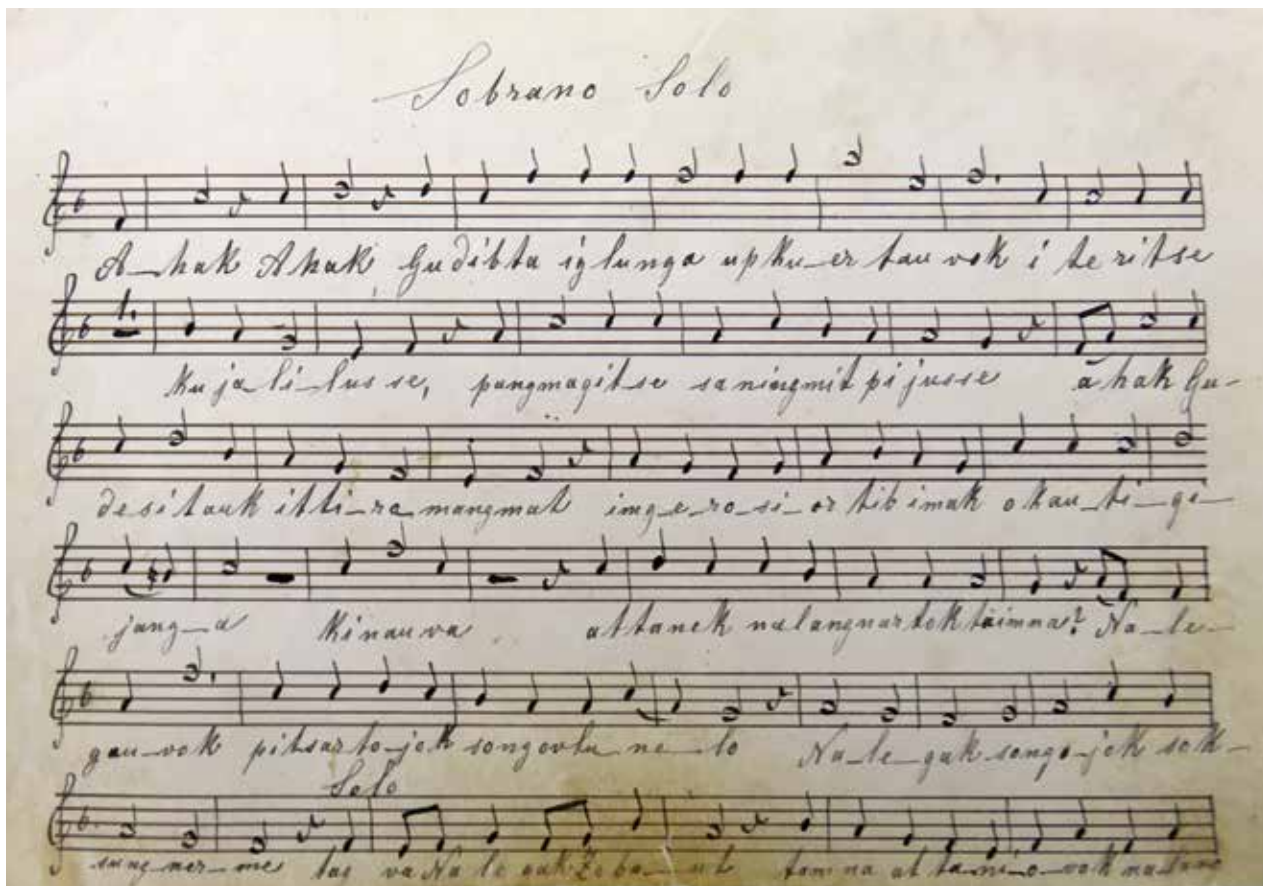 Sobrano Solo
A_hak Ahak Gudibta iglunga upku_er tau vok i te ritse
1.
ku ja li_lus se, pangmagitse saningmit pi jusse a hak Gu-
de si tauk itti_ra mangmat img_e_ro_si_or tib imak o kau_ti_gi-
jang_a kinauva attanek nalangnartok taimna? Na_le-
gau_vok pitsar to_jok songovlu_ne_lo Na_le_gak songo_jok sok-
Solo
sung ner_me tag va Na le gak Zeba_ut tam na at ta ni_o_vok nalang